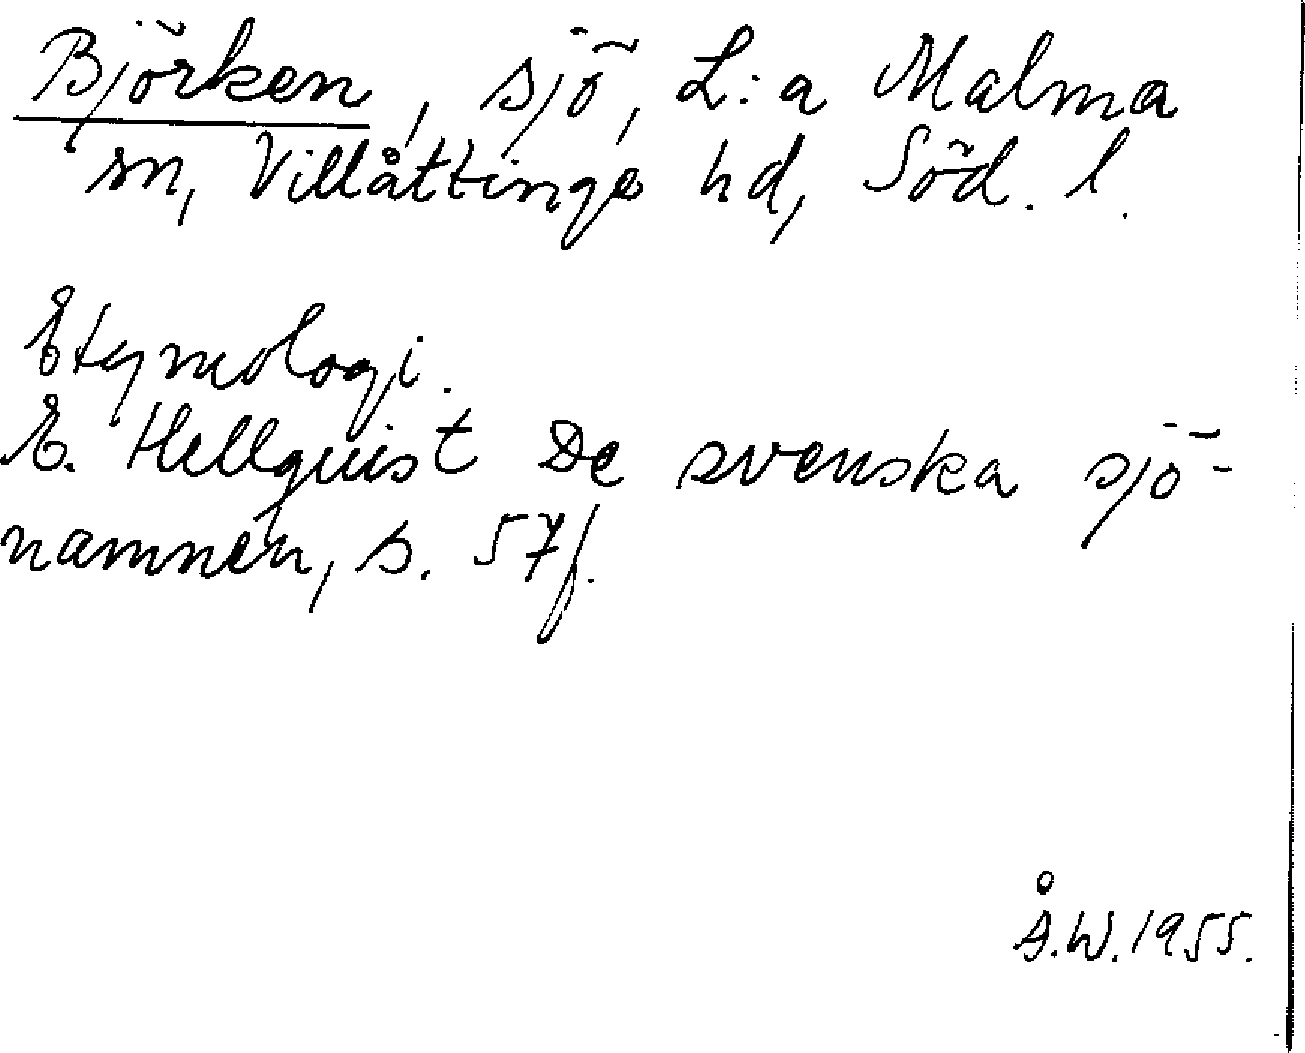 Björken, sjö, L:a Malma
sn, Villåttinge hd, Söd. l.
Etymologi.
E. Hellquist De svenska sjö-
namnen, s. 57f.
Å.W. 1955.